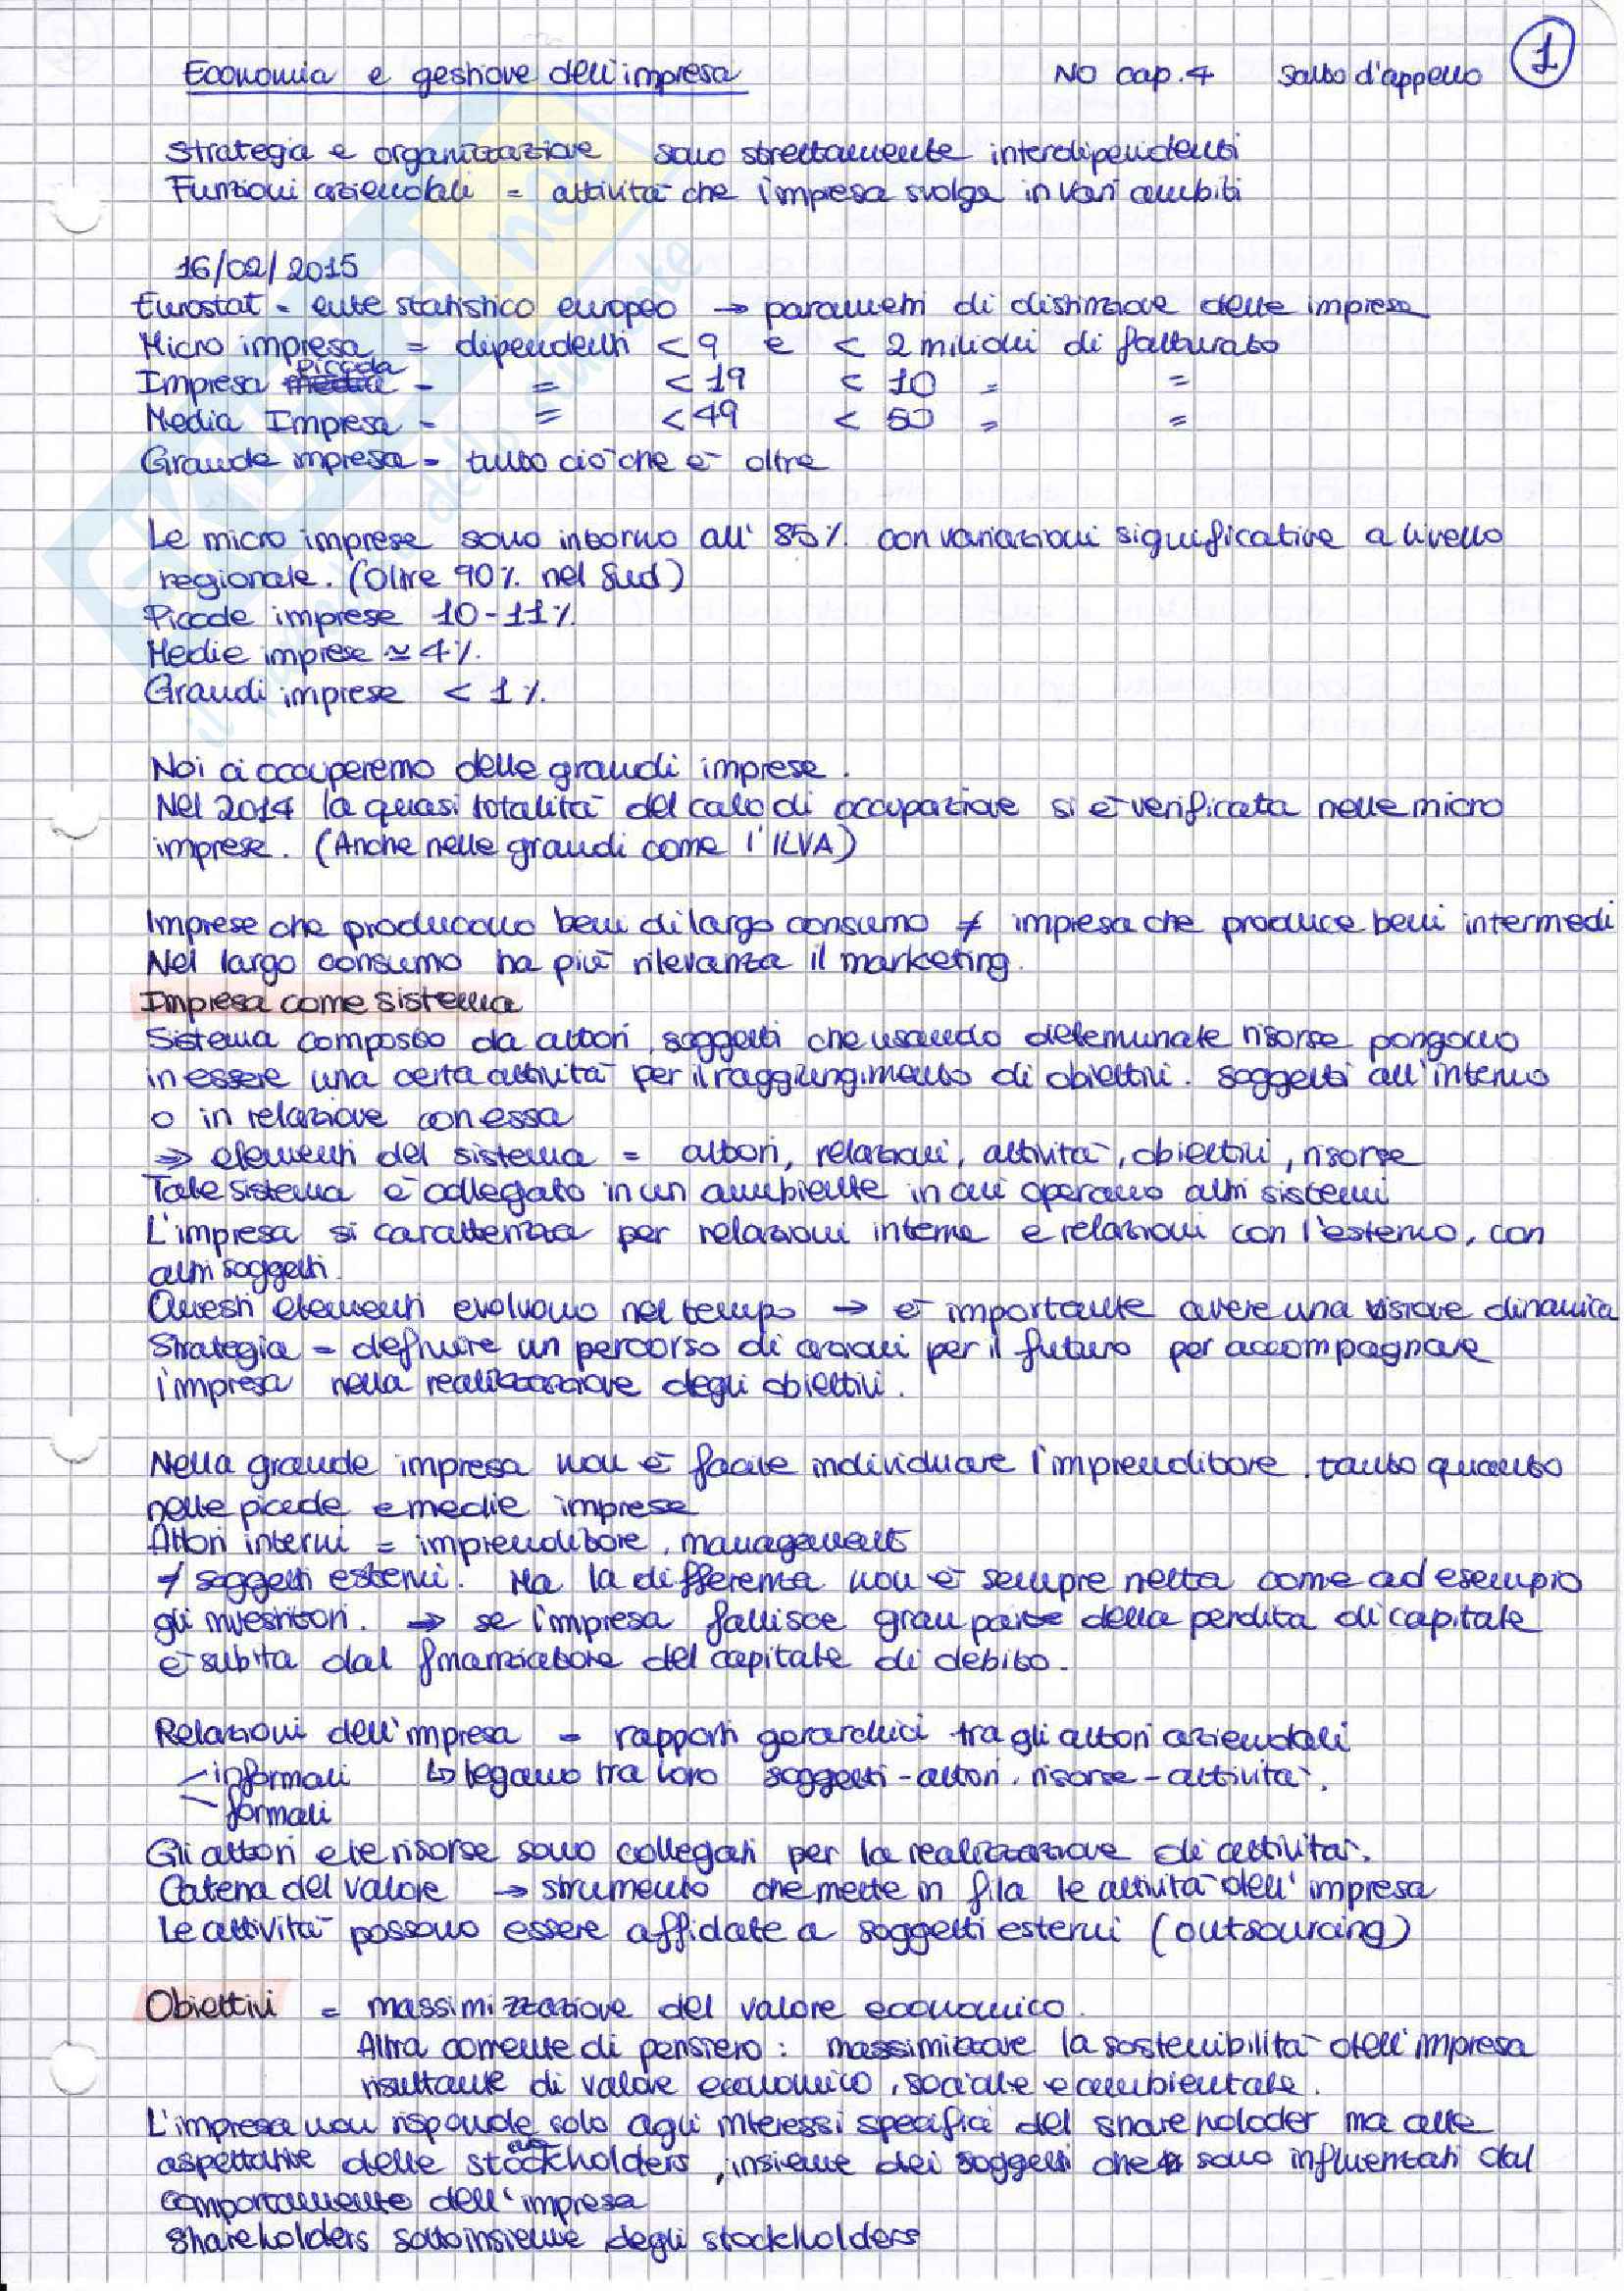 1
Economia e gestione dell'impresa NO cap. 4 salto d'appello
Strategia e organizzazione sono strettamente interdipendenti
Funzioni aziendali = attività che l'impresa svolge in vari ambiti
16/02/2015
Eurostat = ente statistico europeo → parametri di distinzione delle imprese
Micro impresa = dipendenti < 9 e < 2 milioni di fatturato
Impresa piccola = = < 19 < 10 = =
Media Impresa = = < 49 < 50 = =
Grande impresa = tutto ciò che è oltre
Le micro imprese sono intorno all' 85% con variazioni significative a livello
regionale. (Oltre 90% nel Sud)
Piccole imprese 10-11%
Medie imprese ≃ 4%.
Grandi imprese < 1%.
Noi ci occuperemo delle grandi imprese.
Nel 2014 la quasi totalità del calo di occupazione si è verificata nelle micro
imprese. (Anche nelle grandi come l'ILVA)
Imprese che producono beni di largo consumo ≠ impresa che produce beni intermedi
Nel largo consumo ha più rilevanza il marketing.
Impresa come sistema
Sistema composto da attori, soggetti che usando determinate risorse pongono
in essere una certa attività per il raggiungimento di obiettivi. soggetti all'interno
o in relazione con essa
⇒ elementi del sistema = attori, relazioni, attività, obiettivi, risorse
Tale sistema è collegato in un ambiente in cui operano altri sistemi
L'impresa si caratterizza per relazioni interne e relazioni con l'esterno, con
altri soggetti.
Questi elementi evolvono nel tempo → è importante avere una visione dinamica
Strategia = definire un percorso di azioni per il futuro per accompagnare
l'impresa nella realizzazione degli obiettivi.
Nella grande impresa non è facile individuare l'imprenditore, tanto quanto
nelle piccole e medie imprese
Attori interni = imprenditore, management
≠ soggetti esterni. Ma la differenza non è sempre netta come ad esempio
gli investitori. ⇒ se l'impresa fallisce gran parte della perdita di capitale
è subita dal finanziatore del capitale di debito.
Relazioni dell'impresa = rapporti gerarchici tra gli attori aziendali
- informali ↳ legano tra loro soggetti - attori, risorse - attività.
- formali
Gli attori e le risorse sono collegati per la realizzazione di attività.
Catena del valore → strumento che mette in fila le attività dell'impresa
Le attività possono essere affidate a soggetti esterni (outsourcing)
Obiettivi = massimizzazione del valore economico.
Altra corrente di pensiero: massimizzare la sostenibilità dell'impresa
risultante di valore economico, sociale e ambientale.
L'impresa non risponde solo agli interessi specifici del shareholoder ma alle
aspettative delle stockholders, insieme dei soggetti che sono influenzati dal
comportamento dell'impresa
Shareholders sottoinsieme degli stockholders